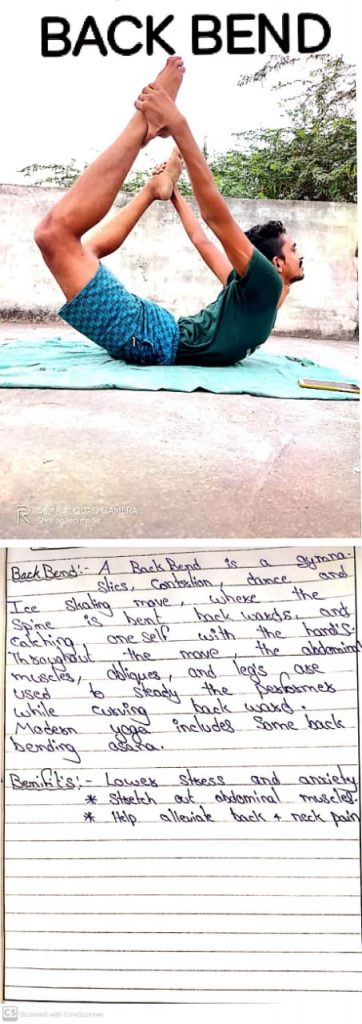 BACK BEND
48MP AI QUAD CAMERA
Shot on realme 5s
Back Bend :- A Back Bend is a gymna-
stics, Contostion, dance and
Ice skating move, where the
Spine is bent back wards, and
catching one self with the hand's.
Throughout the move, the abdominal
muscles, obliques, and legs are
used to steady the performer
while curving back ward.
Modern yoga includes Some back
bending asana.
Benifit's :- Lower stress and anxiety
* Stretch out abdominal muscles.
* Help alleviate back + neck pain
CS Scanned with CamScanner